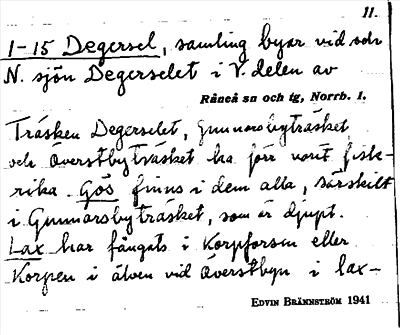 11.
1-15 Degersel, samling byar vid och
N. sjön Degerselet i V. delen av
Råneå sn och tg, Norrb. l.
Träsken Degerselet, Gunnarsbyträsket
och Överstbyträsket ha förr varit fisk-
rika. Gös finns i dem alla, särskilt
i Gunnarsbyträsket, som är djupt.
Lax har fångats i Korpforsen eller
Korpen i älven vid Överstbyn i lax-
EDVIN BRÄNNSTRÖM 1941